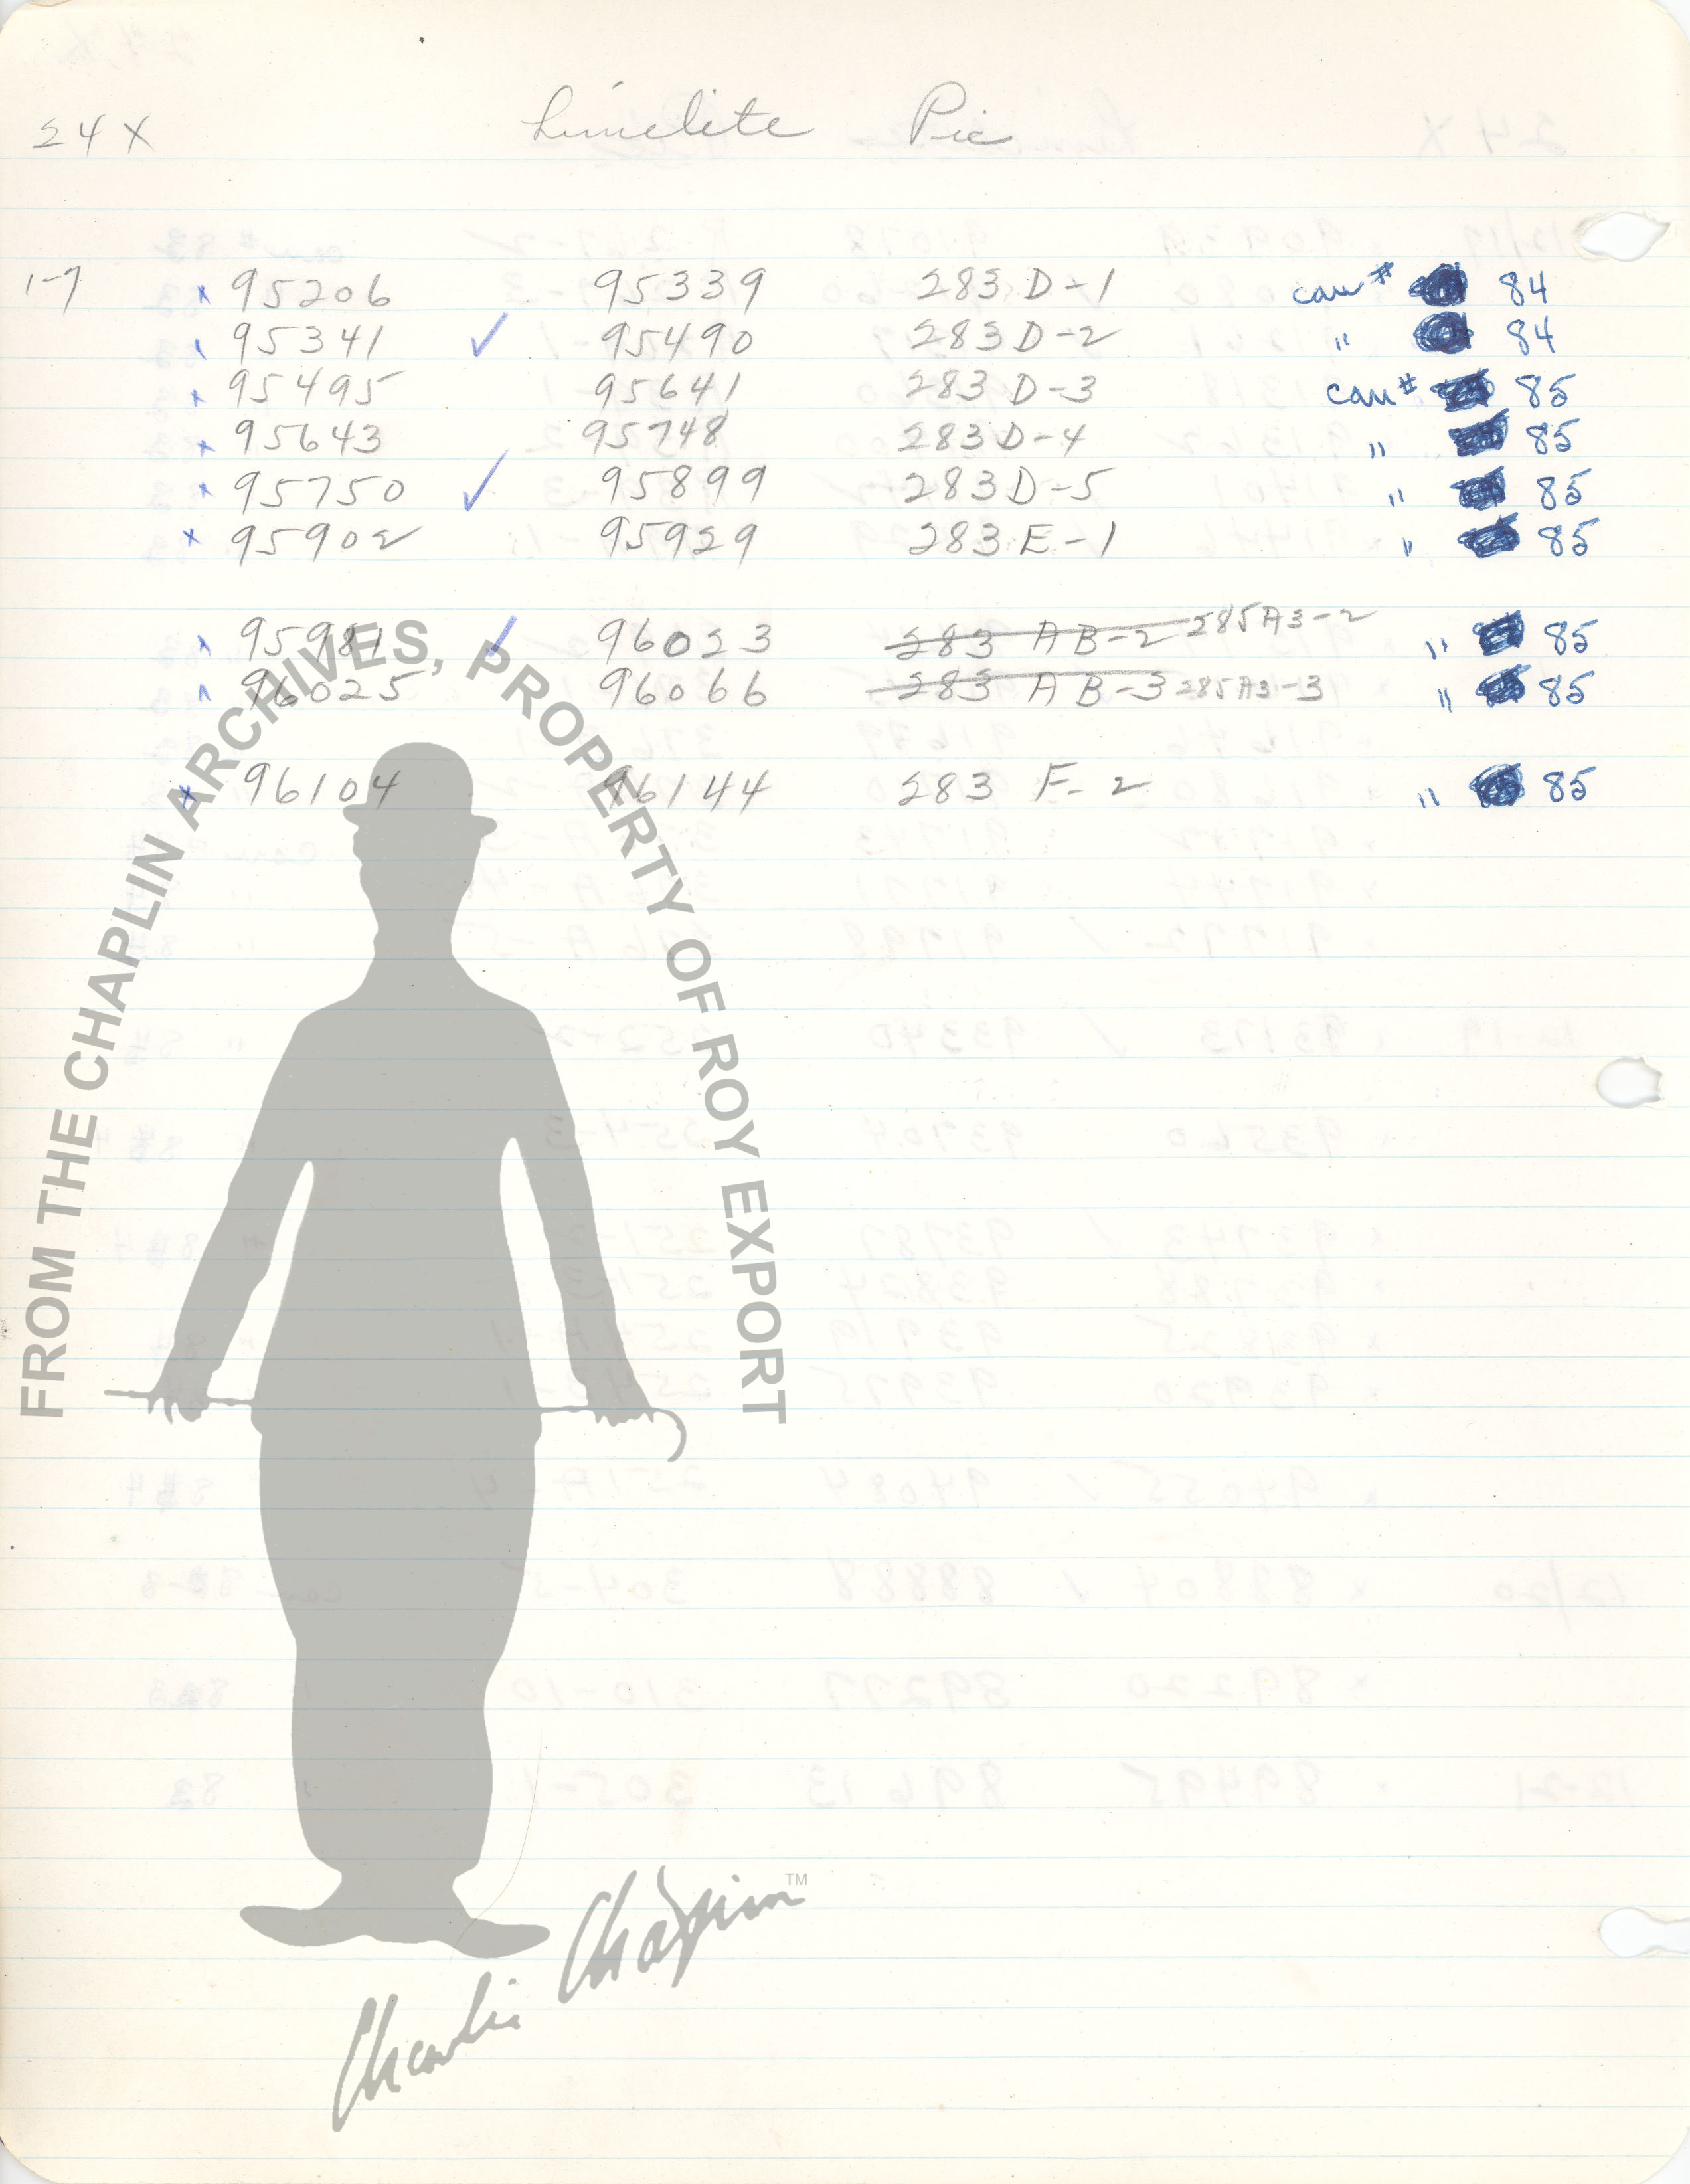 24X Limelite Pic
1-7 x 95206 95339 283 D-1 can # 84
x 95341 ✓ 95490 283 D-2 " 84
x 95495 95641 283 D-3 can # 85
x 95643 95748 283 D-4 " 85
x 95750 ✓ 95899 283 D-5 " 85
x 95902 95929 283 E-1 " 85
x 95981 ✓ 96023 283 AB-2 285A3-2 " 85
x 96025 96066 283 AB-3 285A3-3 " 85
x 96104 96144 283 F-2 " 85
FROM THE CHAPLIN ARCHIVES, PROPERTY OF ROY EXPORT
Charlie Chaplin TM